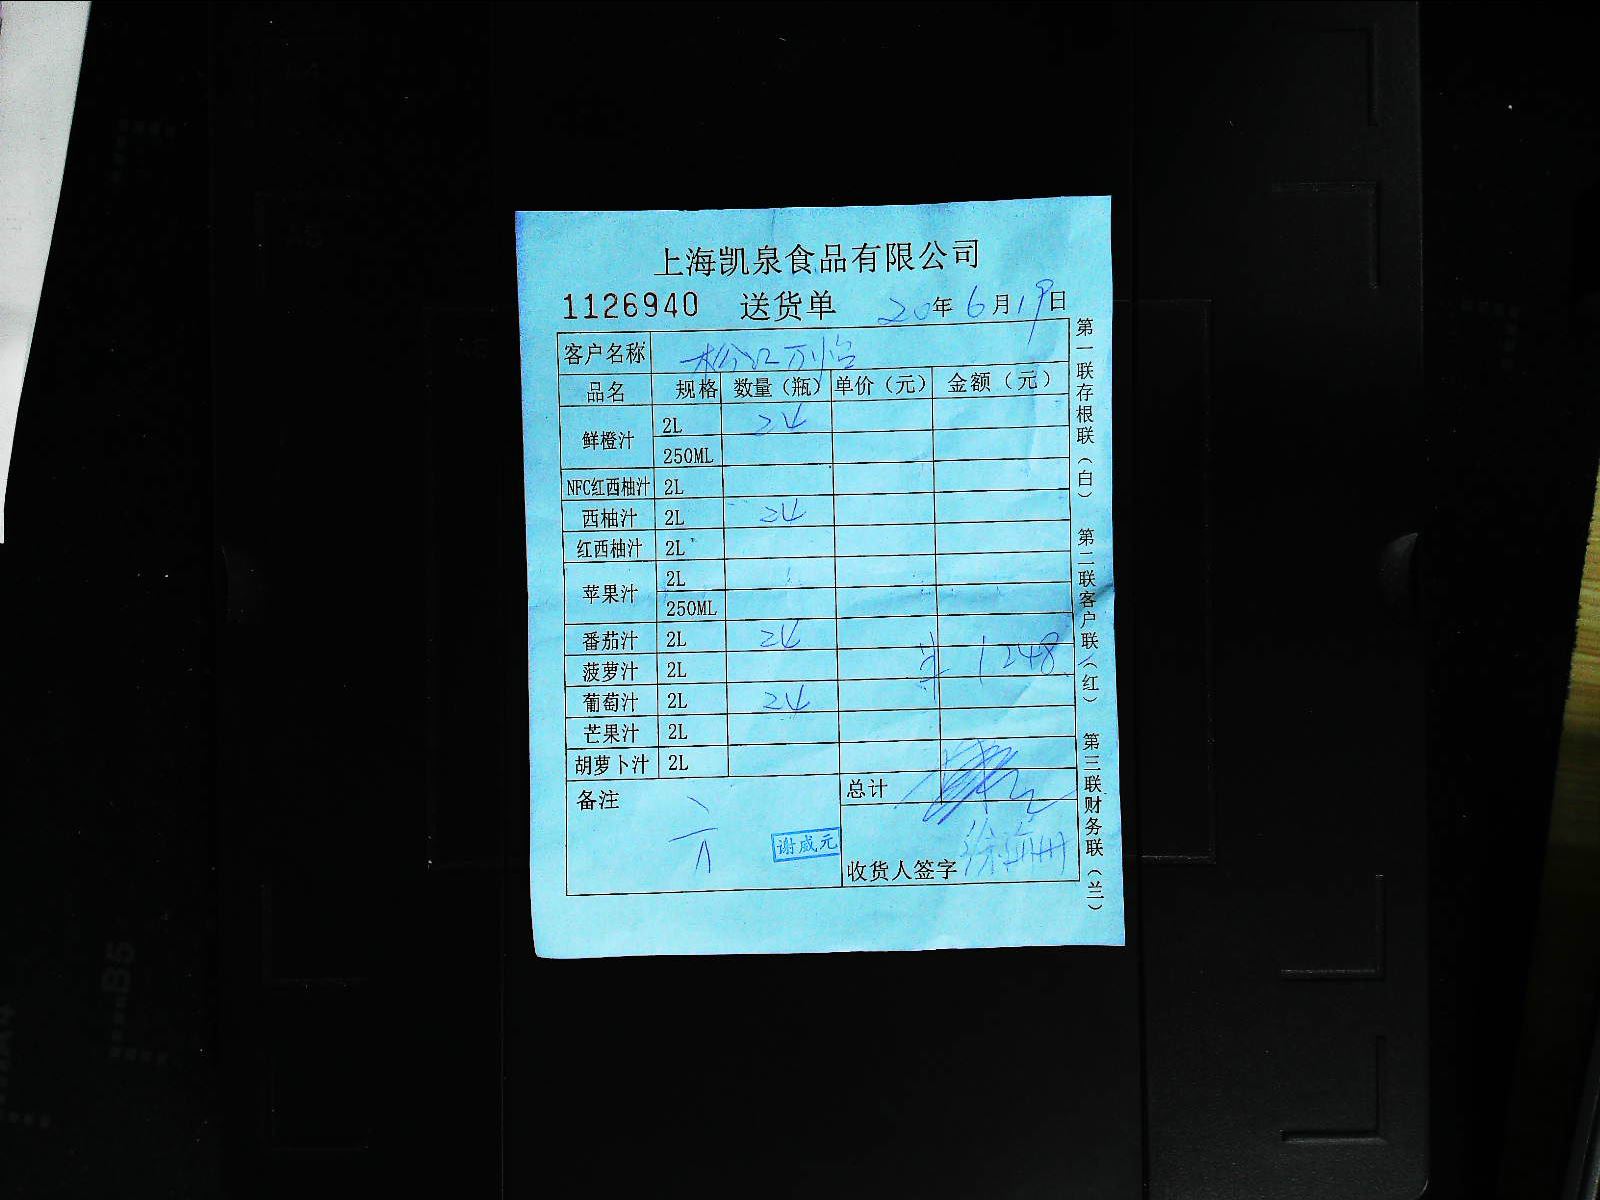 上海凯泉食品有限公司
1126940 送货单 20年6月19日
客户名称 松江万怡
品名 规格 数量(瓶) 单价(元) 金额(元)
鲜橙汁 2L 24
250ML
NFC红西柚汁 2L
西柚汁 2L 24
红西柚汁 2L
苹果汁 2L
250ML
番茄汁 2L 24
菠萝汁 2L 1248
葡萄汁 2L 24
芒果汁 2L
胡萝卜汁 2L
备注 总计
六
谢威元
收货人签字
第一联存根联(白) 第二联客户联(红) 第三联财务联(兰)
B5